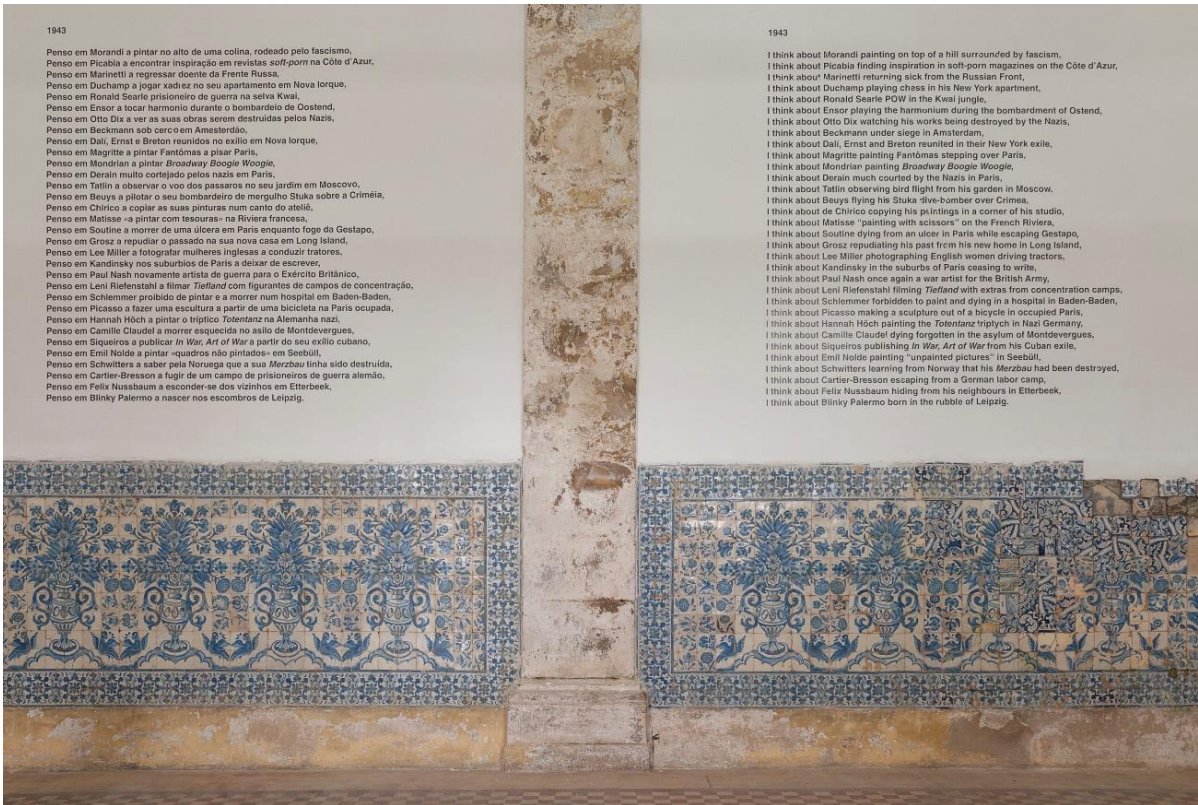 1943
Penso em Morandi a pintar no alto de uma colina, rodeado pelo fascismo,
Penso em Picabia a encontrar inspiração em revistas soft-porn na Côte d'Azur,
Penso em Marinetti a regressar doente da Frente Russa,
Penso em Duchamp a jogar xadrez no seu apartamento em Nova Iorque,
Penso em Ronald Searle prisioneiro de guerra na selva Kwai,
Penso em Ensor a tocar harmonio durante o bombardeio de Oostend,
Penso em Otto Dix a ver as suas obras serem destruidas pelos Nazis,
Penso em Beckmann sob cerco em Amesterdão,
Penso em Dalí, Ernst e Breton reunidos no exílio em Nova Iorque,
Penso em Magritte a pintar Fantômas a pisar Paris,
Penso em Mondrian a pintar Broadway Boogie Woogie,
Penso em Derain muito cortejado pelos nazis em Paris,
Penso em Tatlin a observar o voo dos passaros no seu jardim em Moscovo,
Penso em Beuys a pilotar o seu bombardeiro de mergulho Stuka sobre a Criméia,
Penso em Chirico a copiar as suas pinturas num canto do ateliê,
Penso em Matisse «a pintar com tesouras» na Riviera francesa,
Penso em Soutine a morrer de uma úlcera em Paris enquanto foge da Gestapo,
Penso em Grosz a repudiar o passado na sua nova casa em Long Island,
Penso em Lee Miller a fotografar mulheres inglesas a conduzir tratores,
Penso em Kandinsky nos suburbios de Paris a deixar de escrever,
Penso em Paul Nash novamente artista de guerra para o Exército Britânico,
Penso em Leni Riefenstahl a filmar Tiefland com figurantes de campos de concentração,
Penso em Schlemmer proibido de pintar e a morrer num hospital em Baden-Baden,
Penso em Picasso a fazer uma escultura a partir de uma bicicleta na Paris ocupada,
Penso em Hannah Höch a pintar o tríptico Totentanz na Alemanha nazi,
Penso em Camille Claudel a morrer esquecida no asilo de Montdevergues,
Penso em Siqueiros a publicar In War, Art of War a partir do seu exílio cubano,
Penso em Emil Nolde a pintar «quadros não pintados» em Seebüll,
Penso em Schwitters a saber pela Noruega que a sua Merzbau tinha sido destruída,
Penso em Cartier-Bresson a fugir de um campo de prisioneiros de guerra alemão,
Penso em Felix Nussbaum a esconder-se dos vizinhos em Etterbeek,
Penso em Blinky Palermo a nascer nos escombros de Leipzig.
1943
I think about Morandi painting on top of a hill surrounded by fascism,
I think about Picabia finding inspiration in soft-porn magazines on the Côte d'Azur,
I think about Marinetti returning sick from the Russian Front,
I think about Duchamp playing chess in his New York apartment,
I think about Ronald Searle POW in the Kwai jungle,
I think about Ensor playing the harmonium during the bombardment of Ostend,
I think about Otto Dix watching his works being destroyed by the Nazis,
I think about Beckmann under siege in Amsterdam,
I think about Dalí, Ernst and Breton reunited in their New York exile,
I think about Magritte painting Fantômas stepping over Paris,
I think about Mondrian painting Broadway Boogie Woogie,
I think about Derain much courted by the Nazis in Paris,
I think about Tatlin observing bird flight from his garden in Moscow,
I think about Beuys flying his Stuka dive-bomber over Crimea,
I think about de Chirico copying his paintings in a corner of his studio,
I think about Matisse "painting with scissors" on the French Riviera,
I think about Soutine dying from an ulcer in Paris while escaping Gestapo,
I think about Grosz repudiating his past from his new home in Long Island,
I think about Lee Miller photographing English women driving tractors,
I think about Kandinsky in the suburbs of Paris ceasing to write,
I think about Paul Nash once again a war artist for the British Army,
I think about Leni Riefenstahl filming Tiefland with extras from concentration camps,
I think about Schlemmer forbidden to paint and dying in a hospital in Baden-Baden,
I think about Picasso making a sculpture out of a bicycle in occupied Paris,
I think about Hannah Höch painting the Totentanz triptych in Nazi Germany,
I think about Camille Claudel dying forgotten in the asylum of Montdevergues,
I think about Siqueiros publishing In War, Art of War from his Cuban exile,
I think about Emil Nolde painting "unpainted pictures" in Seebüll,
I think about Schwitters learning from Norway that his Merzbau had been destroyed,
I think about Cartier-Bresson escaping from a German labor camp,
I think about Felix Nussbaum hiding from his neighbours in Etterbeek,
I think about Blinky Palermo born in the rubble of Leipzig.